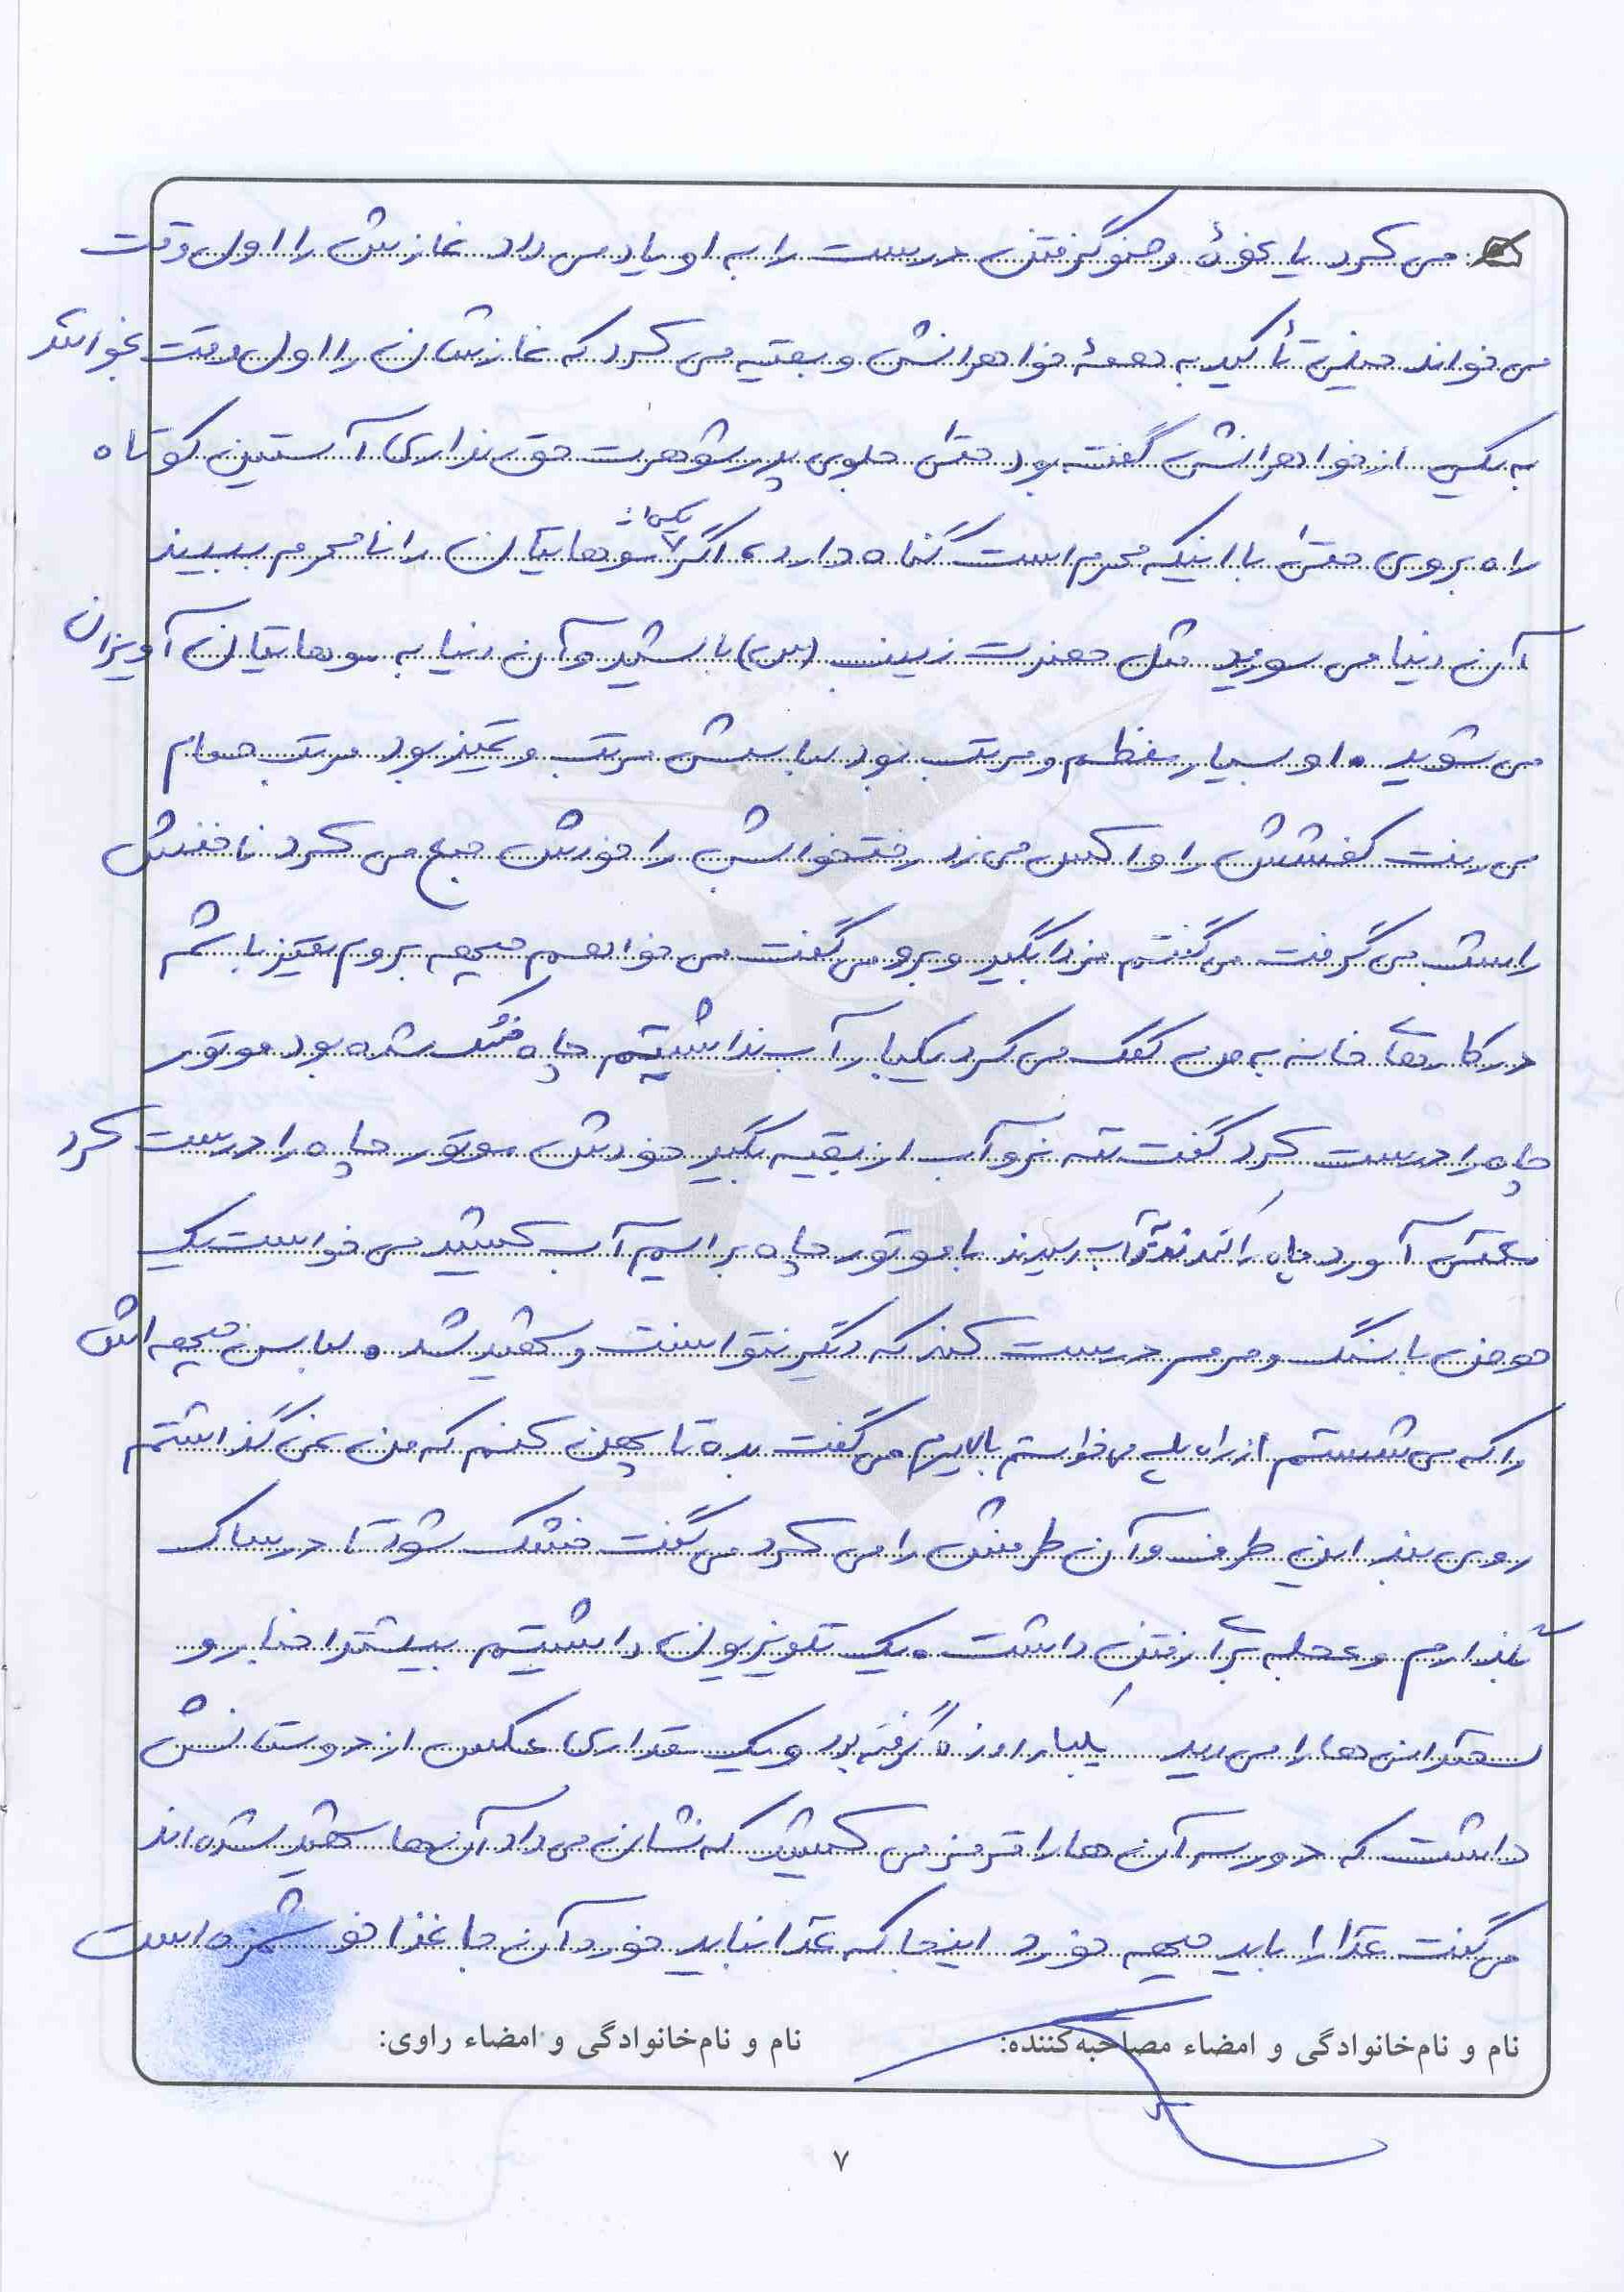 می کرد یا نحوهٔ وضو گرفتن درست را به او یاد می داد نمازش را اول وقت
می خواند حتی تأکید به همهٔ خواهرانش و بقیه می کرد که نمازشان را اول وقت بخوانند
به یکی از خواهرانش گفته بود حتی جلوی پدر شوهرت حق نداری آستین کوتاه
راه بروی حتی با اینکه محرم است گناه دارد، اگر یکی از موهایتان را نامحرم ببیند
آن دنیا می سوزید مثل حضرت زینب (س) باشید و آن دنیا به موهایتان آویزان
می شوید. او بسیار منظم و مرتب بود لباسش مرتب و تمیز بود مرتب حمام
می رفت کفشش را واکس می زد رختخوابش را خودش جمع می کرد ناخنش
را شب می گرفت می گفتم فردا بگیر و برو می گفت می خواهم جبهه بروم تمیز باشم
در کارهای خانه به من کمک می کرد یکبار آب نداشتیم چاه خشک شده بود موتور
چاه را درست کرد گفت ننه نرو آب از بقیه بگیر خودش موتور چاه را درست کرد
آورد چاه را کندند تا به آب رسیدند با موتور چاه برایم آب کشید می خواست یک
حوض با سنگ و مرمر درست کند که دیگر نتوانست و شهید شد. لباس جبهه اش
را که می شستم از راه پله می خواستم بالا بروم می گفت بده تا پهن کنم که من نمی گذاشتم
روی بند این طرف و آن طرفش را می کرد می گفت خشک شود تا در ساک
بگذارم و عجله برای رفتن داشت. یک تلویزیون داشتیم بیشتر اخبار و
سخنرانی ها را می دید یکبار روزه گرفته بود و یک مقداری عکس از دوستانش
داشت که دور سر آن ها را قرمز می کشید که نشان می داد آن ها شهید شده اند
می گفت غذا را باید جبهه خورد اینجا که غذا نباید خورد آن جا غذا خوشمزه است
نام و نام‌خانوادگی و امضاء مصاحبه‌کننده:
نام و نام‌خانوادگی و امضاء راوی:
۷